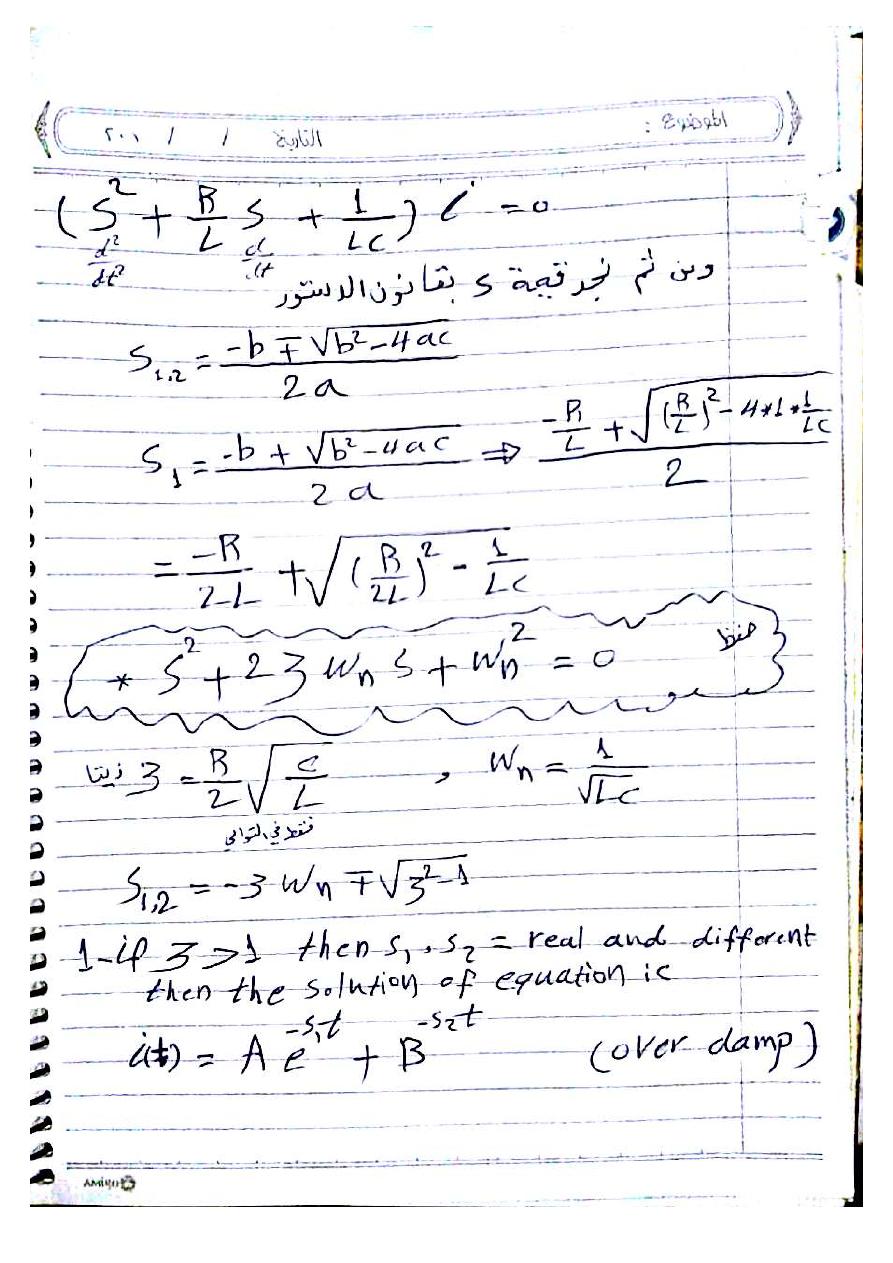 الموضوع : التاريخ / / ٢٠١
(S² + R/L S + 1/LC) i = 0
d²/dt² d/dt
ومن ثم نجد قيمة S بقانون الدستور
S₁,₂ = (-b ∓ √(b² - 4ac)) / 2a
S₁ = (-b + √(b² - 4ac)) / 2a ⇒ (-R/L + √((R/L)² - 4*1*1/LC)) / 2
= -R/2L + √((R/2L)² - 1/LC)
* S² + 2 ʒ Wn S + Wn² = 0 حفظ
زيتا ʒ = R/2 √(C/L) , Wn = 1/√LC
فقط في التوالي
S₁,₂ = -ʒ Wn ∓ √(ʒ² - 1)
1- if ʒ > 1 then S₁, S₂ = real and different
then the solution of equation is
i(t) = A e^(-S₁t) + B^(-S₂t) (over damp)
AMIGO